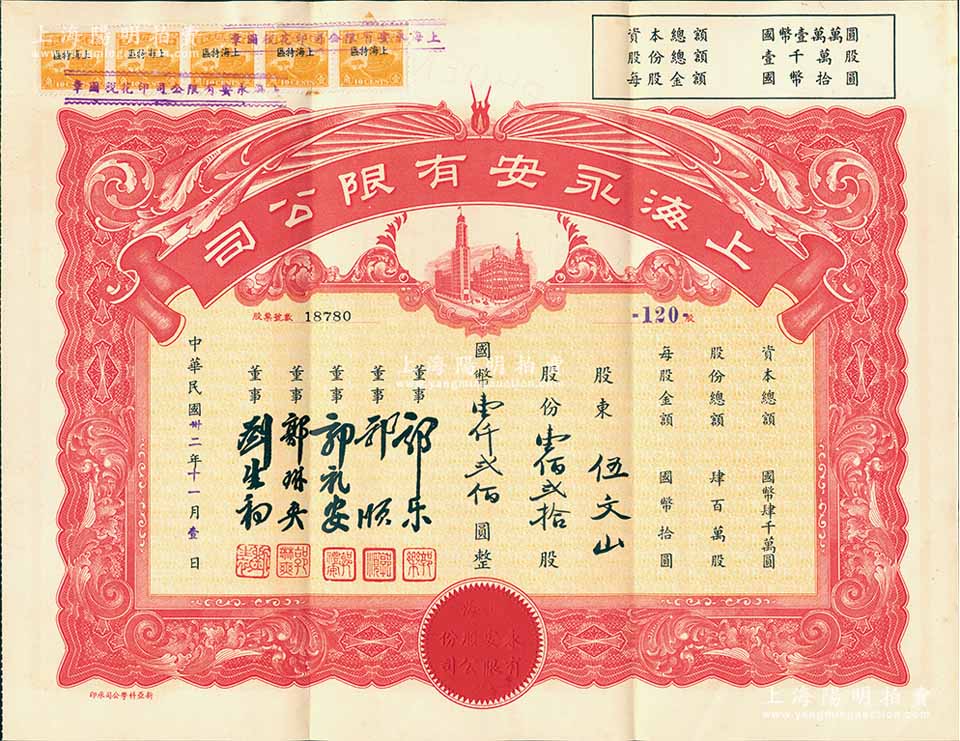 上海陽明拍賣
www.yangmingauction.com
資本總額 國幣壹萬萬圓
股份總額 壹千萬股
每股金額 國幣拾圓
上海特區
上海特區
上海特區
上海特區
上海特區
10 CENTS
10 CENTS
10 CENTS
10 CENTS
10 CENTS
上海永安有限公司印花稅圖章
上海永安有限公司印花稅圖章
上海永安有限公司
股票號數 18780
-120-股
資本總額 國幣肆千萬圓
股份總額 肆百萬股
每股金額 國幣拾圓
股東 伍文山
股份壹佰貳拾股
國幣壹仟貳佰圓整
董事 郭乐
董事 郭順
董事 郭礼安
董事 郭琳爽
董事 劉生初
中華民國卅二年十一月壹日
上海永安股份有限公司
新亞科學公司承印
上海陽明拍賣
www.yangmingauction.com
上海陽明拍賣
www.yangmingauction.com